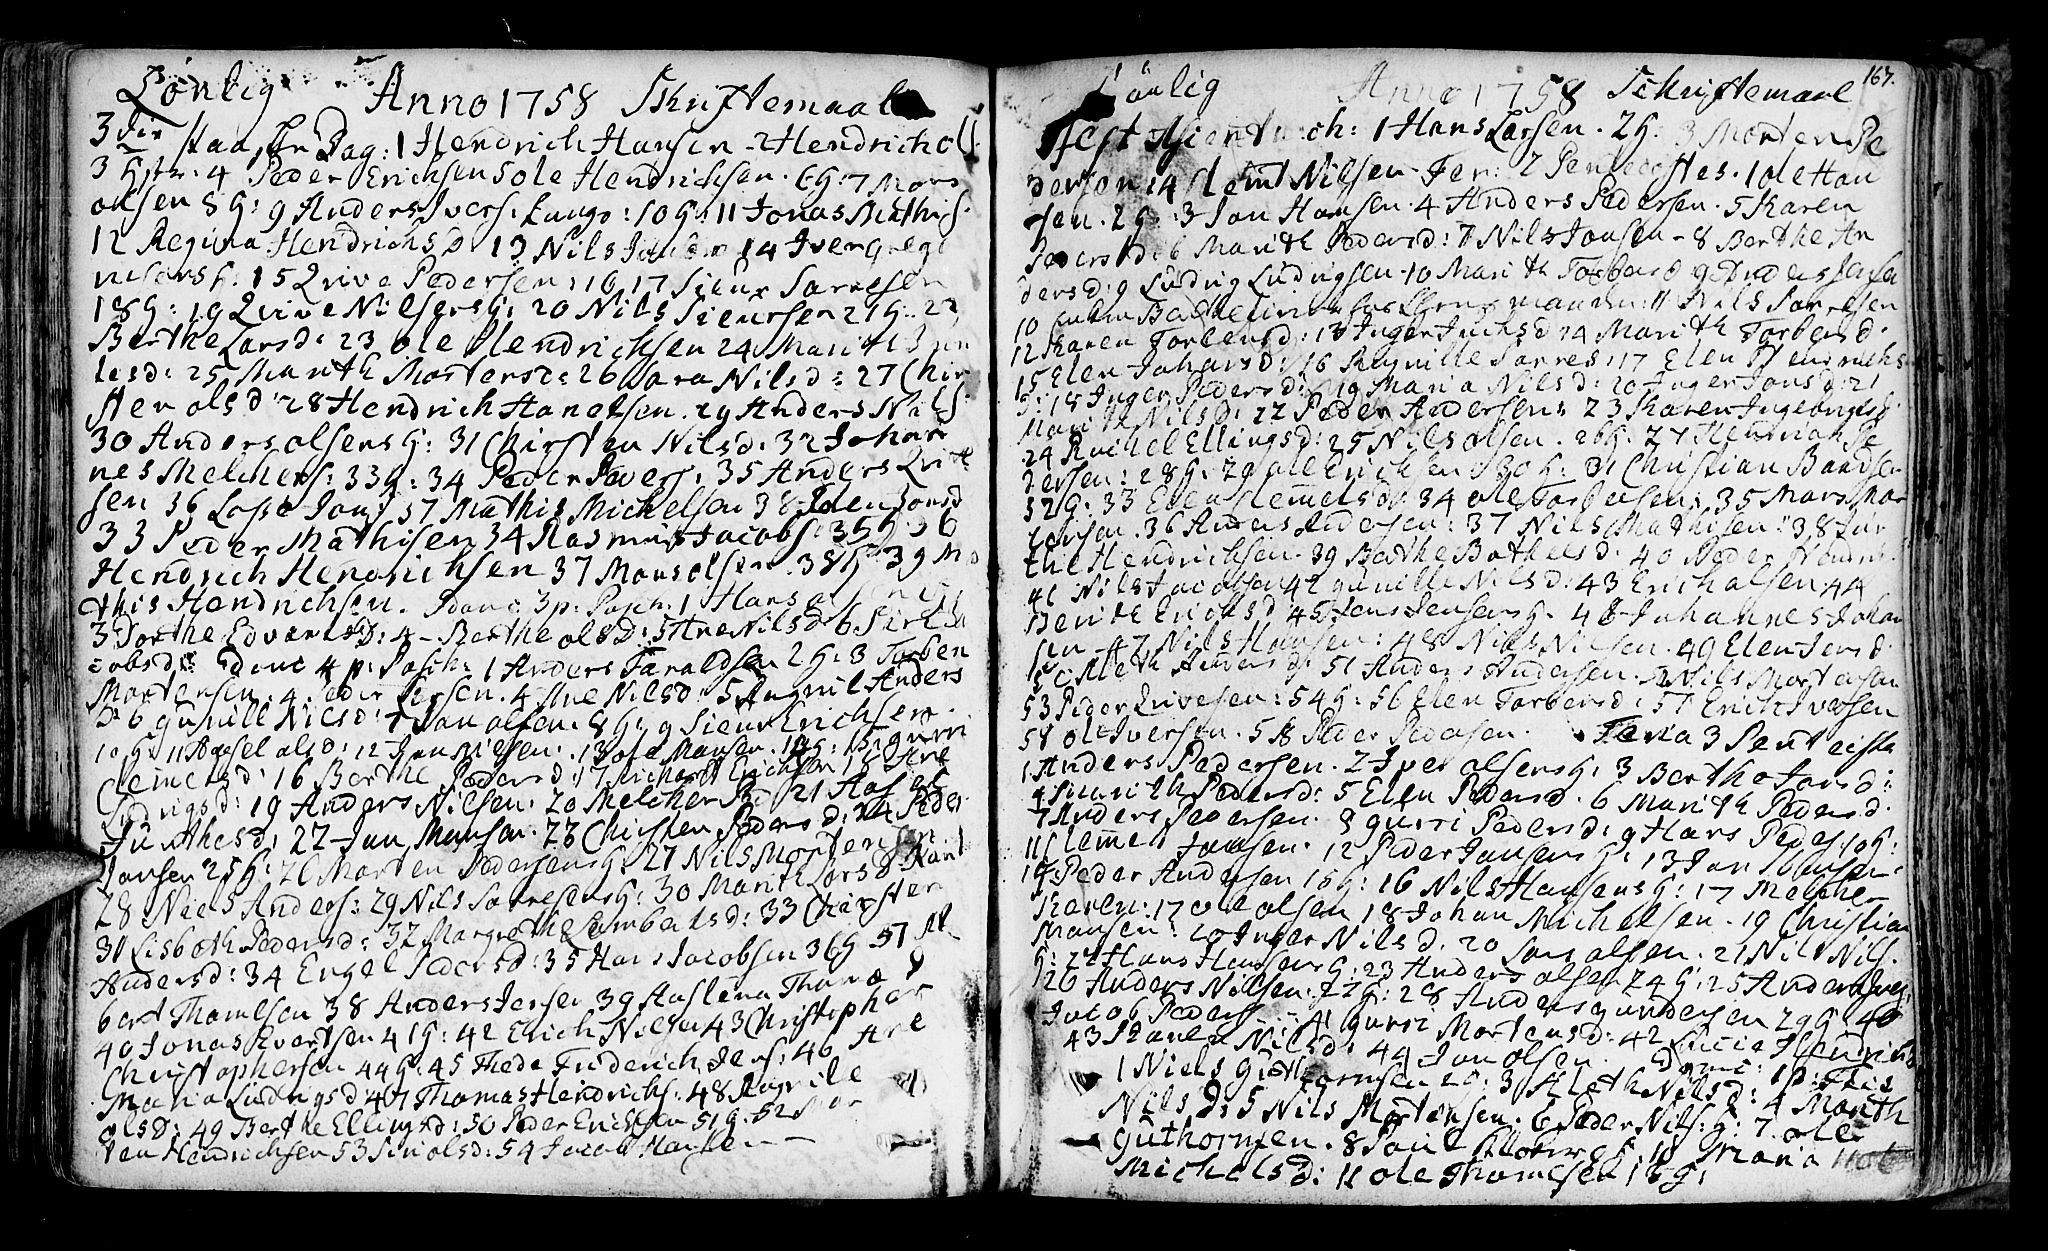 Lönlig Anno 1758 Skriftemaal
3 die Paasche Dag: 1 Hendrich Hansen 2 Hendrich ols:
3 hstr: 4 Peder Erichsen 5 ole Hendrichsen. 6 h: 7 Mons
olsen 8 h: 9 Anders Ivers: Lange: 10 h: 11 Jonas Mathis:
12 Regina Hendrichs D 13 Nils Jonsen 14 Iver Grege
nisens h: 15 Qvive Pedersen: 16 17 Siour Sarresen
18 h: 19 Qvive Nilsens h: 20 Nils Sieursen 21 h: 22
Berthe Larsd: 23 ole Hendrichsen 24 Marith
lesd: 25 Marith Mortensd: 26 Sara Nilsd: 27 Chir
sten olsd 28 Hendrich Hanelsen. 29 Anders Nils:
30 Anders olsens h: 31 Chirsten Nilsd: 32 Johan
nes Melchers: 33 h: 34 Peder Ivers: 35 Anders Qvive
sen 36 Lasse Jons 37 Mathis Michelsen 38 Elen Jonsd
33 Peder Mathisen 34 Rasmus Jacobs: 35 h 36
Hendrich Hendrichsen 37 Mons olsen. 38 h 39 Ma
this Hendrichsen. Domc 3 p: Pasch: 1 Hans olsen 2 h
3 Dorthe Edvards D: 4 Berthe olsD: 5 Ane Nilsd 6 Siri Ja
cobsd: Domc 4 p: Pasch: 1 Anders Taraldsen 2 h: 3 Torben
Mortensen. 4 Peder Larsen. 4 Ane Nilsd 5 Angnil Anders
D 6 gunill Nielsd: 7 Jon olsen. 8 h: 9 Sieur Erichsen.
10 h: 11 Aasel olsd: 12 Jon Nielsen. 13 ole Monsen. 14 h: 15 gurri
Clemetsd: 16 Berthe Pedersd: 17 Richard Erichsen 18 Ane
Ludvigsd: 19 Anders Nilsen: 20 Melcher 21 Aase
Junthesd: 22 Jon Monsen. 23 Chirsten Pedersd: 24 Peder
Jonsen 25 h: 26 Morten Pedersens h: 27 Nils Mortensen
28 Niels Anders: 29 Nils Sarresens h: 30 Marith Lars D
31 Lisbeth Pedersd: 32 Margrethe Lambertsd: 33 Chirsten
Andersd: 34 Engel Pedersd: 35 Hans Jacobsen 36 h 37 Al
bert Thomesen 38 Anders Jensen 39 Aaslena Thomæ D
40 Jonas Evertsen 41 h: 42 Erich Nilsen 43 Christopher
Christophersen 44 h: 45 Thede Friderich Jens: 46 Ane
Maria Ludvigsd 47 Thomas Hendrichs: 48 Ragnile
olsD: 49 Berthe Ellingsd: 50 Peder Erichsen 51 h. 52 Mor
ten Hendrichsen 53 Siri olsd: 54 Jacob Hansen
Lönlig Anno 1758 Schriftemaal 167.
1 Hans Larsen. 2 h: 3 Morten Pe
dersøn: 4 Clemt Nilsen. Fer: 2 Pentecostes. 1 ole Han
sen. 2 h: 3 Jon Hansen. 4 Anders Pedersen. 5 Karen
Peders D: 6 Marith Pedersd: 7 Nils Jonsen. 8 Berthe An
dersd: 9 Ludvig Ludvigsen. 10 Marith Torbensd 9 Anders Jensen
10 11 Nils Sarresen
12 Karen Torbensd: 13 Inger Juthsd 14 Marith Torbensd.
15 Elen Johansd: 16 Ragnille Sarres: 17 Elen Hendrichs
D: 18 Inger Pedersd: 19 Maria Nilsd: 20 Inger Jonsd: 21
Marith Nilsd: 22 Peder Andersen: 23 Karen Ingebrigtsd:
24 Rachel Ellingsd: 25 Nils olsen. 26 h. 27 Hendrich Pe
dersen: 28 h: 29 ole Erichsen: 30 h: 31 Christian Baardsen
32 h: 33 Elen Clemmetsd: 34 ole Torbensen: 35 Mons Mor
tensen. 36 Anders Pedersen: 37 Nils Mathisen: 38 Jun
the Hendrichsen. 39 Berthe Bothelsd. 40 Peder Hendrich
41 Nils Jacobsen 42 gunille Nilsd: 43 Erich olsen 44
Berithe Erichsd: 45 Jens Jensens h. 46 Johannes Johan
sen 47 Nils Hansen: 48 Niels Nilsen. 49 Elen Jensd.
50 Aleth Andersd: 51 Anders Andersen. 52 Nils Mortensen
53 Peder Qvivesen: 54 h: 56 Elen Torbensd: 57 Erich Iversen
57 ole Iversen. 58 Peder Pedersen. Feria 3 Penteco
1 Anders Pedersen. 2 Iver olsens h: 3 Berthe Jonsd:
4 Marith Pedersd: 5 Elen Pedersd. 6 Marith Pedersd.
7 Anders Pedersen. 8 gurri Pedersd: 9 Hans Peders 10 h:
11 Clemmet Jonsen. 12 Peder Jonsens h: 13 Jon Jonsen:
14 Peder Andersen 15 h: 16 Nils Hansens h: 17 Melcher
Iversen: 17 ole olsen 18 Johan Michelsen. 19 Christian
Monsen. 20 Inger Nilsd. 20 Jon olsen. 21 Nils Nils:
h: 22 Hans Hansens h: 23 Anders olsen 24 h: 25 Anders Ivers
26 Anders Nilsen. 27 h: 28 Anders gundersen 29 h: 40
Jacob Peders: 41 gurri Mortensd: 42 Lucie Hendrichs
43 Karen Nilsd: 44 Jon olsen. Domc: 1 p:
1 Niels Guthormsen 2 h: 3 Aleth Nilsd: 4 Marith
Nils D: 5 Nils Mortensen. 6 Peder Nils: h: 7. ole
guthormsen. 8 Poul 10 Maria
Michels D: 11 ole Thomesen 12 h: